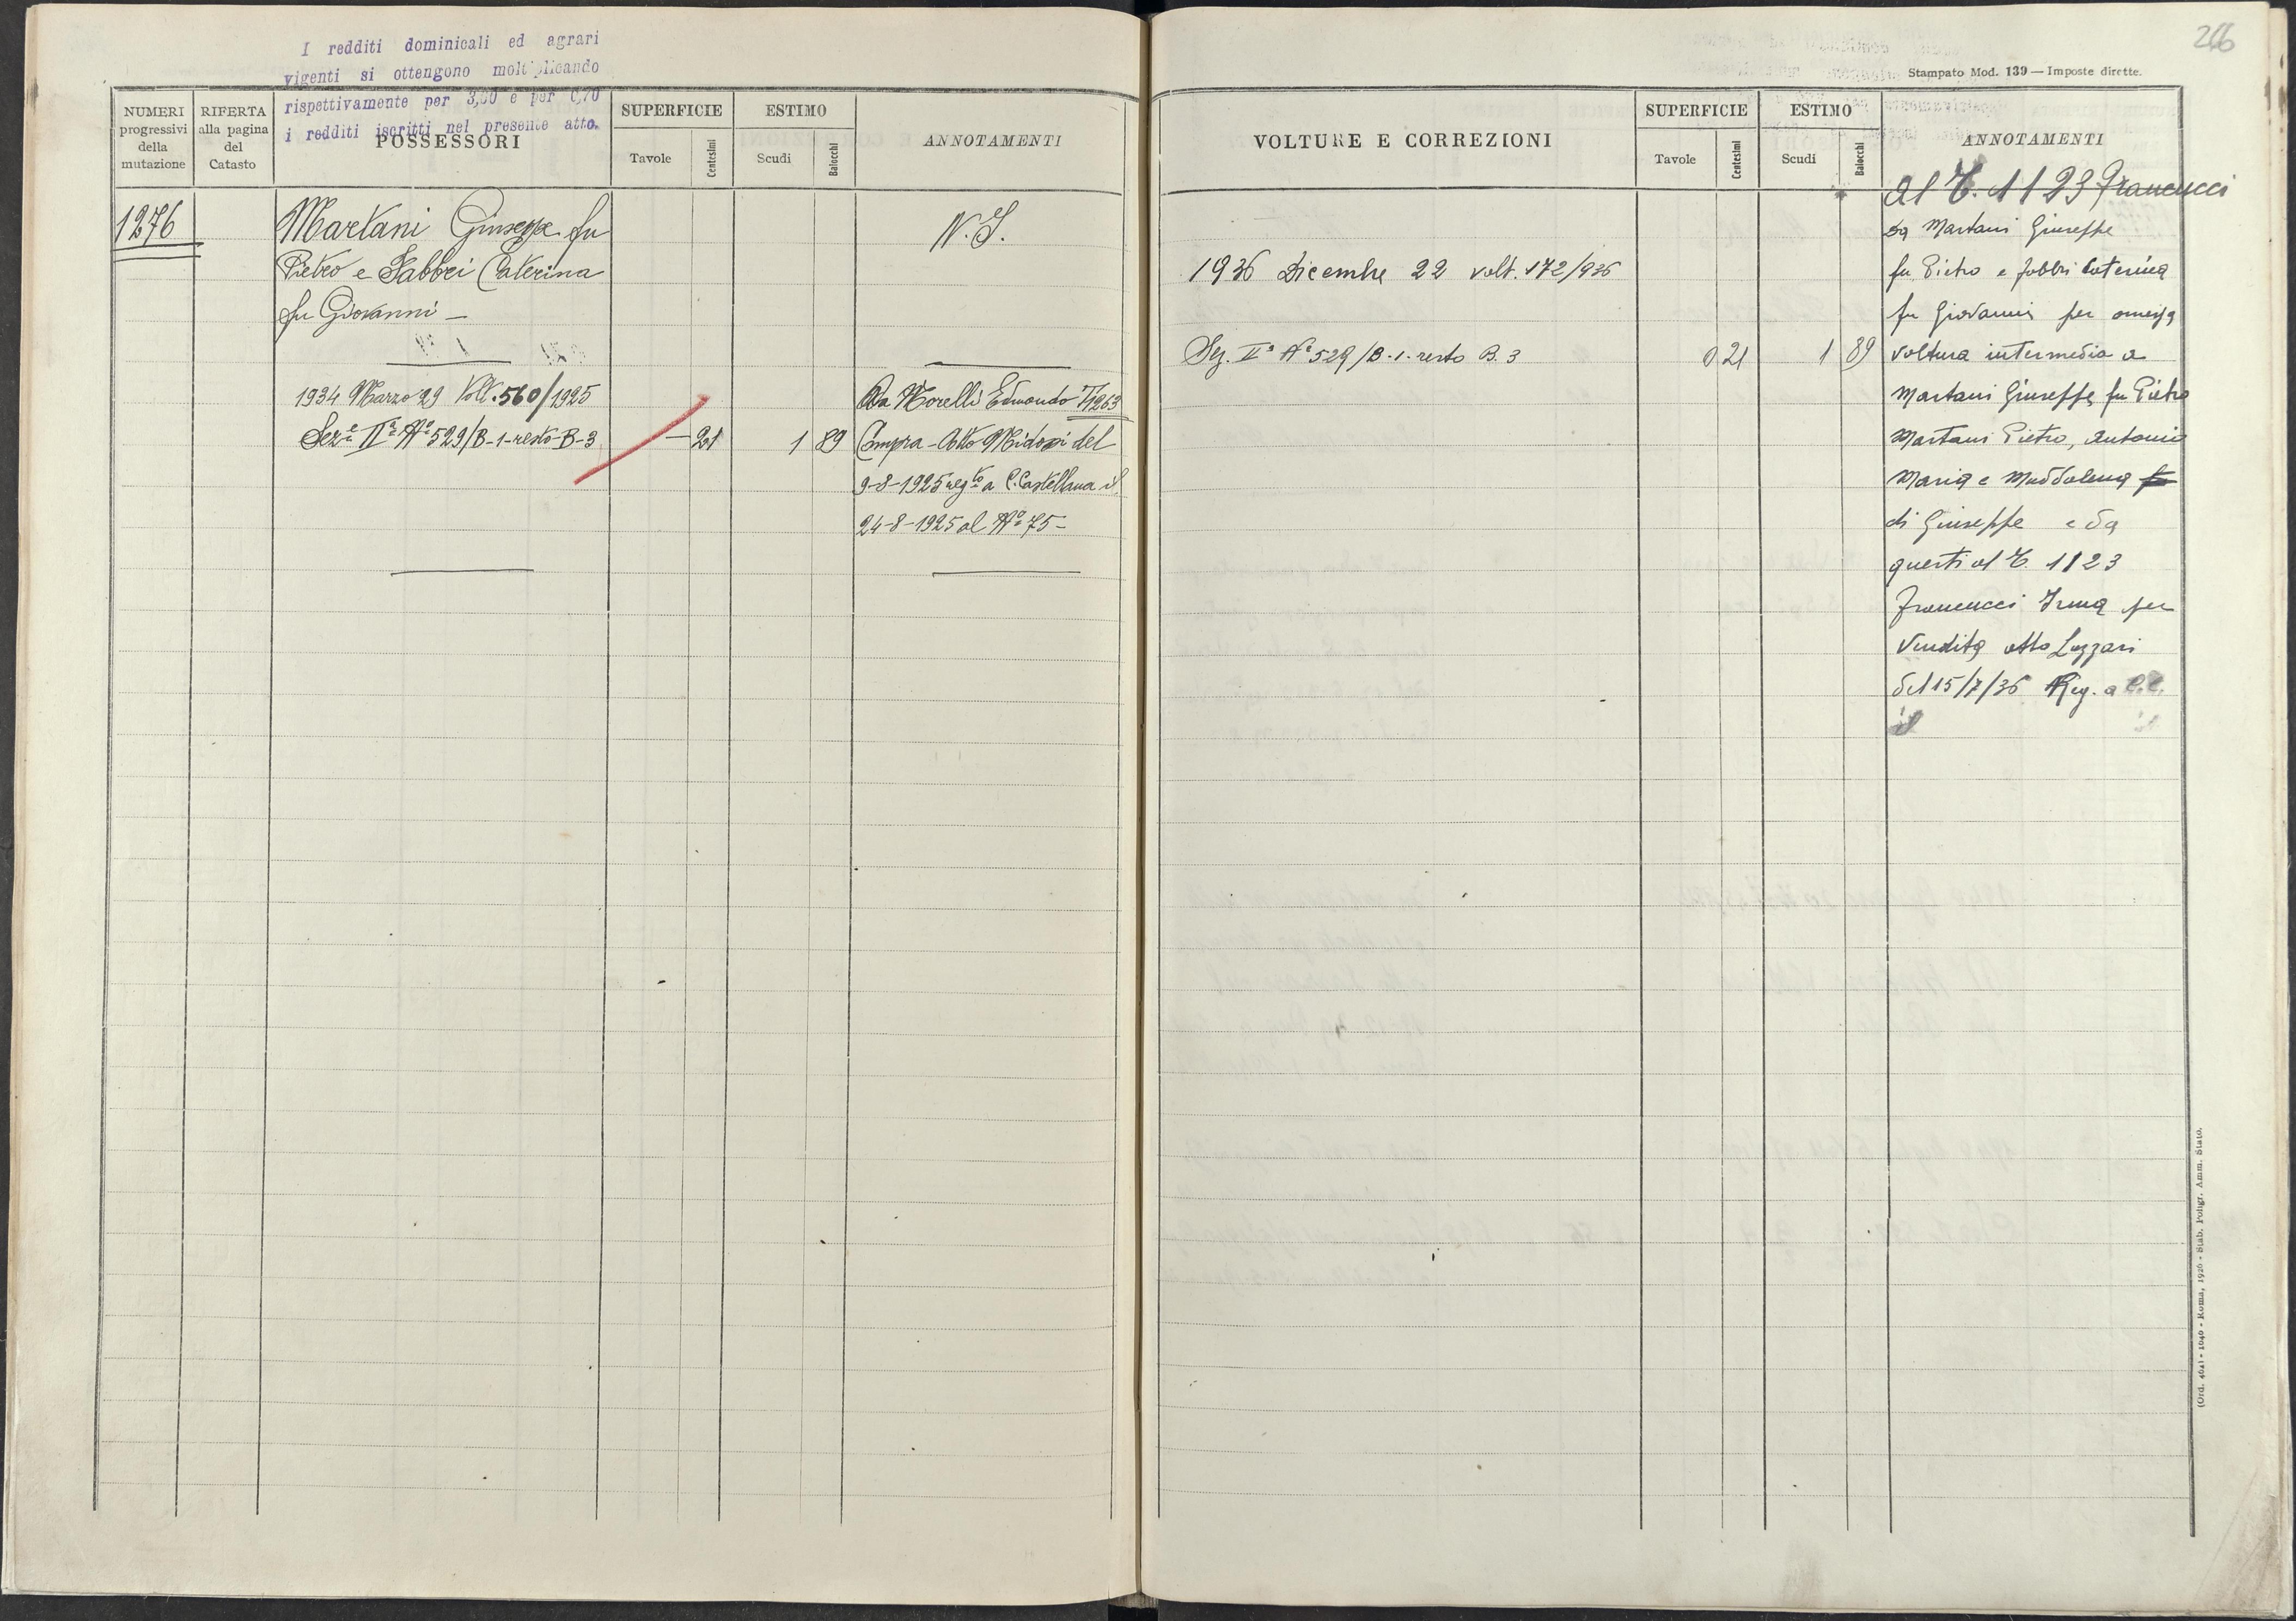 I redditi dominicali ed agrari
vigenti si ottengono moltiplicando
rispettivamente per 3,30 e per 0,70
i redditi iscritti nel presente atto.
NUMERI progressivi della mutazione
RIFERTA alla pagina del Catasto
POSSESSORI
SUPERFICIE
Tavole
Centesimi
ESTIMO
Scudi
Baiocchi
ANNOTAMENTI
1276
Martani Giuseppe fu
Pietro e Fabbri Caterina
fu Giovanni —
N. I.
1934 Marzo 29 Volt. 560/1925
Da Morelli Edmondo T/1263
Sez.e IIa No 529/B-1-resto-B-3 — 21 1 89
Compra - Atto Midossi del
9-8-1925 regto a C. Castellana il
24-8-1925 al No 75 -
266
Stampato Mod. 139 — Imposte dirette.
VOLTURE E CORREZIONI
SUPERFICIE
Tavole
Centesimi
ESTIMO
Scudi
Baiocchi
ANNOTAMENTI
Al T. 1123 Francucci
da Martani Giuseppe
1936 Dicembre 22 volt. 172/936
fu Pietro e Fabbri Caterina
fu Giovanni per omessa
Sez. IIa No 529/B-1-resto B.3 0 21 1 89
voltura intermedia a
Martani Giuseppe fu Pietro
Martani Pietro, Antonio
Maria e Maddalena fu
di Giuseppe e da
questi al T. 1123
Francucci Irma per
vendita atto Lazzari
del 15/7/36 Reg. a C.C.
il
(Ord. 4641 - 1640 - Roma, 1926 - Stab. Poligr. Amm. Stato.